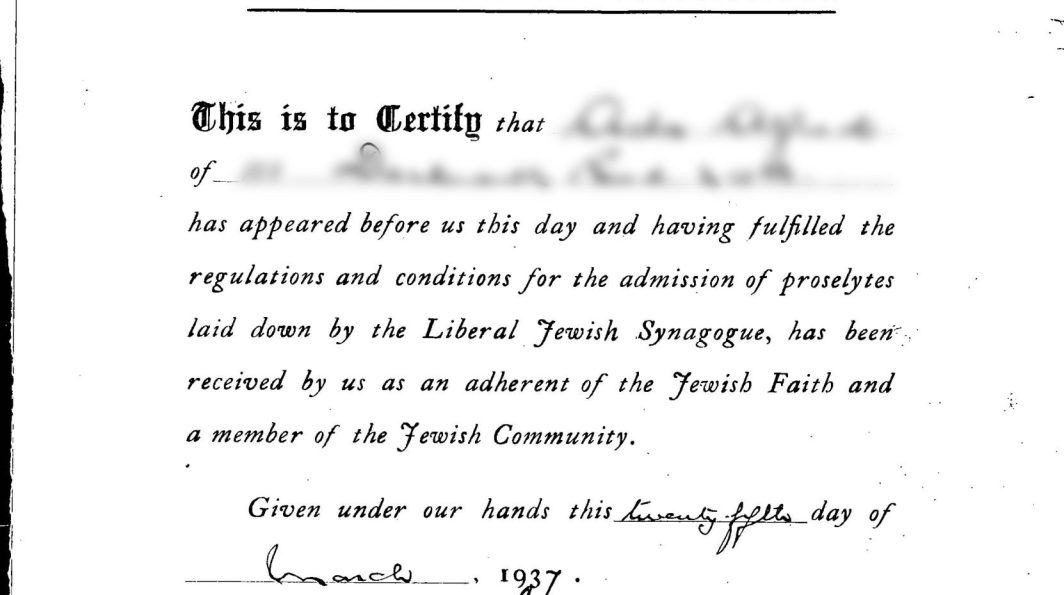 This is to Certify that
of
has appeared before us this day and having fulfilled the
regulations and conditions for the admission of proselytes
laid down by the Liberal Jewish Synagogue, has been
received by us as an adherent of the Jewish Faith and
a member of the Jewish Community.
Given under our hands this twenty fifth day of
March, 1937.